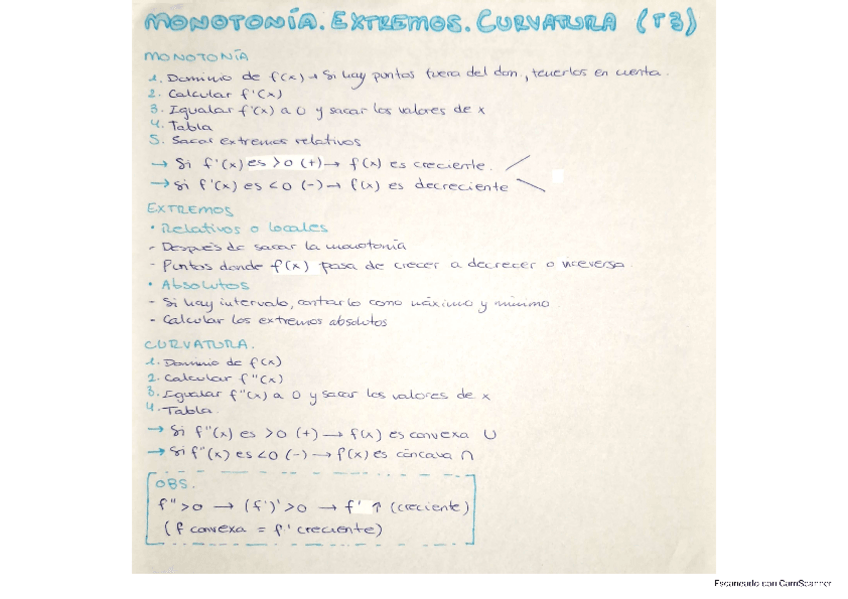 MONOTONÍA. EXTREMOS. CURVATURA (T3)
MONOTONÍA
1. Dominio de f(x) → Si hay puntos fuera del dom., tenerlos en cuenta.
2. Calcular f'(x)
3. Igualar f'(x) a 0 y sacar los valores de x
4. Tabla
5. Sacar extremos relativos
→ Si f'(x) es >0 (+) → f(x) es creciente.
→ Si f'(x) es <0 (-) → f(x) es decreciente
EXTREMOS
• Relativos o locales
- Después de sacar la monotonía
- Puntos donde f(x) pasa de crecer a decrecer o viceversa.
• Absolutos
- Si hay intervalo, contarlo como máximo y mínimo.
- Calcular los extremos absolutos
CURVATURA.
1. Dominio de f(x)
2. Calcular f"(x)
3. Igualar f"(x) a 0 y sacar los valores de x
4. Tabla.
→ Si f"(x) es >0 (+) → f(x) es convexa ∪
→ Si f"(x) es <0 (-) → f(x) es cóncava ∩
OBS.
f" >0 → (f')' >0 → f' ↑ (creciente)
(f convexa = f' creciente)
Escaneado con CamScanner